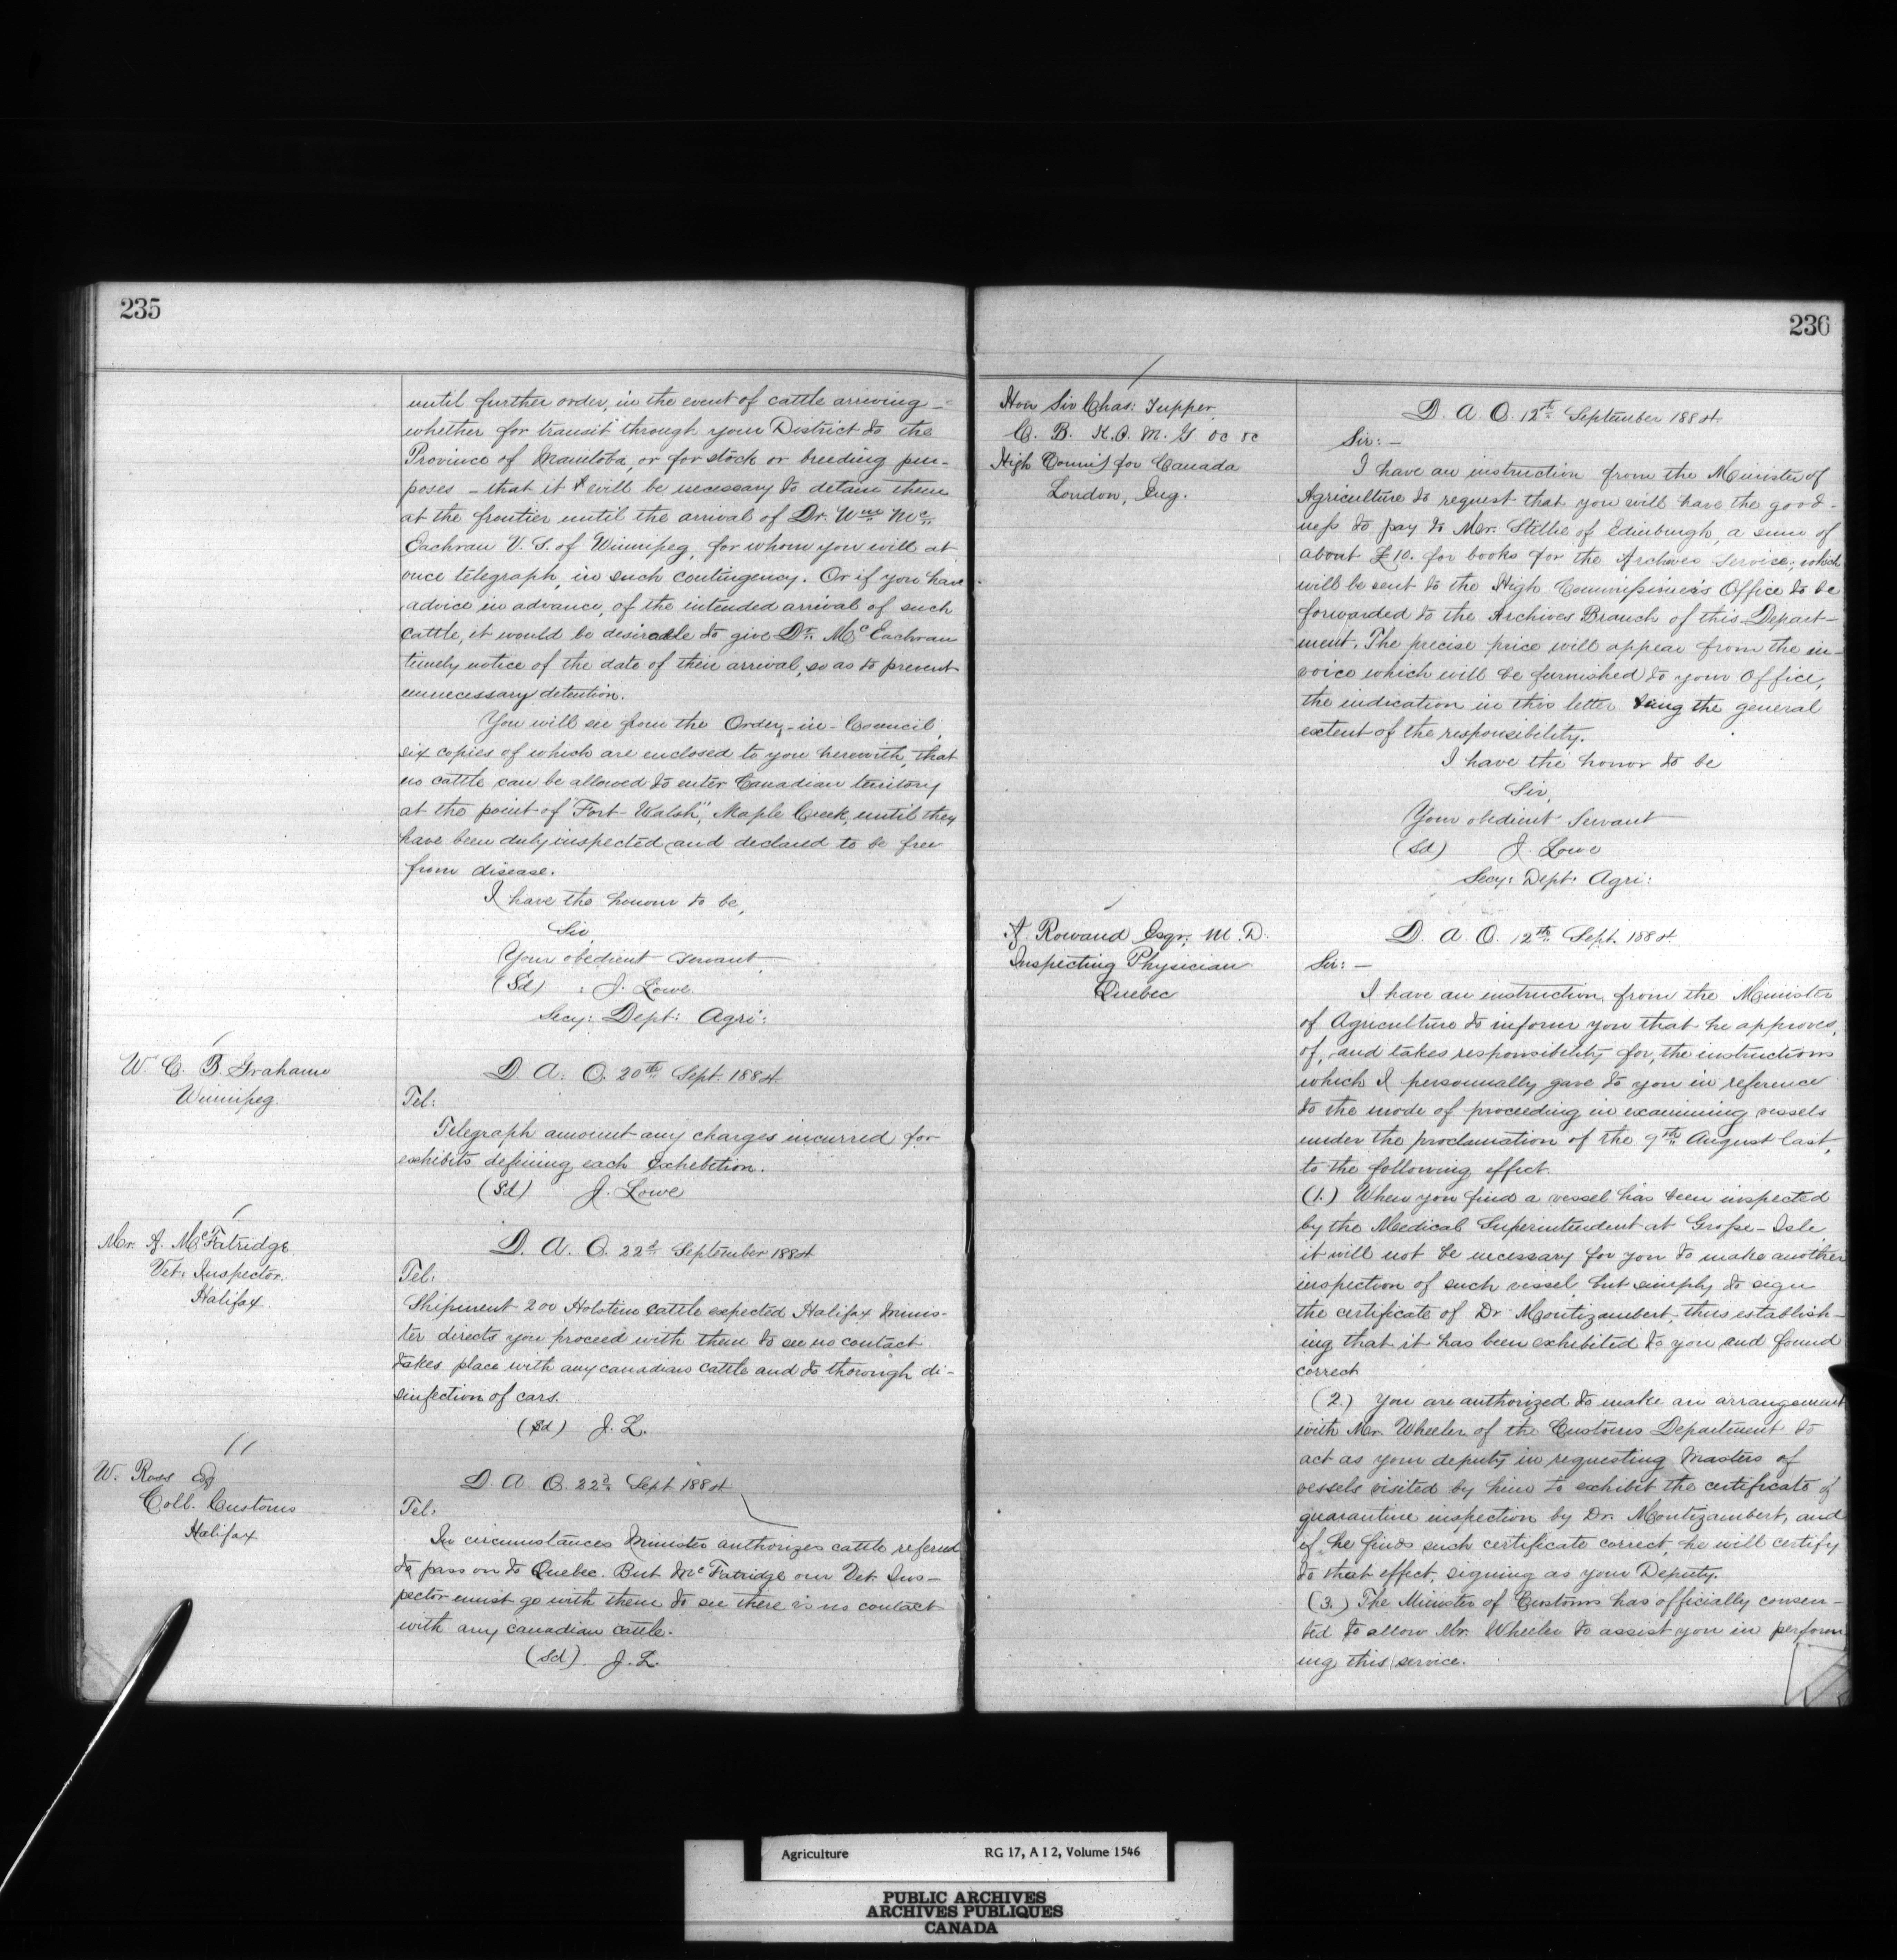 235
until further order, in the event of cattle arriving –
whether for transit through your District to the
Province of Manitoba, or for stock or breeding pur-
poses – that it will be necessary to detain them
at the frontier until the arrival of Dr. Wm Mc
Eachran V. S. of Winnipeg, for whom you will at
once telegraph, in such contingency. Or if you have
advice in advance, of the intended arrival of such
cattle, it would be desirable to give Dr. McEachran
timely notice of the date of their arrival, so as to prevent
unnecessary detention.
You will see from the Order-in-Council,
six copies of which are enclosed to you herewith, that
no cattle can be allowed to enter Canadian territory
at the point of "Fort-Walsh", Maple Creek, until they
have been duly inspected and declared to be free
from disease.
I have the honour to be,
Sir,
Your obedient servant,
(Sd) : J. Lowe
Secy: Dept: Agri:
W. C. B. Grahame
Winnipeg.
D. A. O. 20th Sept. 1884.
Tel:
Telegraph amount any charges incurred for
exhibits defining each exhibition.
(Sd) J. Lowe
Mr. A. McFatridge
Vet. Inspector.
Halifax.
D. A. O. 22d September 1884
Tel:
Shipment 200 Holstein cattle expected Halifax Minis-
ter directs you proceed with them to see no contact
takes place with any canadian cattle and to thorough di-
sinfection of cars.
(Sd) J. L.
W. Ross Esq
Coll. Customs
Halifax
D. A. O. 22d Sept 1884
Tel:
In circumstances Minister authorizes cattle refered
to pass on to Quebec. But McFatridge our Vet. Ins-
pector must go with them to see there is no contact
with any canadian cattle.
(Sd) J. L.
236
Hon Sir Chas: Tupper
C. B. K. C. M. G &c &c
High Commr for Canada
London, Eng.
D. A. O. 12th September 1884.
Sir: –
I have an instruction from the Minister of
Agriculture to request that you will have the good-
ness to pay to Mr. Stillie of Edinburgh, a sum of
about £10. for books for the Archives Service; which
will be sent to the High Commissioner's Office to be
forwarded to the Archives Branch of this Depart-
ment. The precise price will appear from the in-
voice which will be furnished to your Office,
the indication in this letter being the general
extent of the responsibility.
I have the honor to be
Sir,
Your obedient Servant
(Sd) J. Lowe
Secy: Dept: Agri:
A. Rowand Esqr. M. D.
Inspecting Physician
Quebec
D. A. O. 12th Sept. 1884.
Sir: –
I have an instruction from the Minister
of Agriculture to inform you that he approves,
of, and takes responsibility for, the instructions
which I personnally gave to you in reference
to the mode of proceeding in examining vessels
under the proclamation of the 9th August last,
to the following effect.
(1.) When you find a vessel has been inspected
by the Medical Superintendent at Grosse-Isle,
it will not be necessary for you to make another
inspection of such vessel, but simply to sign
the certificate of Dr. Montizambert, thus establish-
ing that it has been exhibited to you and found
correct
(2.) You are authorized to make an arrangement
with Mr. Wheeler of the Customs Department to
act as your deputy in requesting Masters of
vessels visited by him to exhibit the certificate of
quarantine inspection by Dr. Montizambert, and
if he finds such certificate correct, he will certify
to that effect, signing as your Deputy.
(3.) The Minister of Customs has officially consen-
ted to allow Mr. Wheeler to assist you in perform
ing this service.
Agriculture RG 17, A I 2, Volume 1546
PUBLIC ARCHIVES
ARCHIVES PUBLIQUES
CANADA